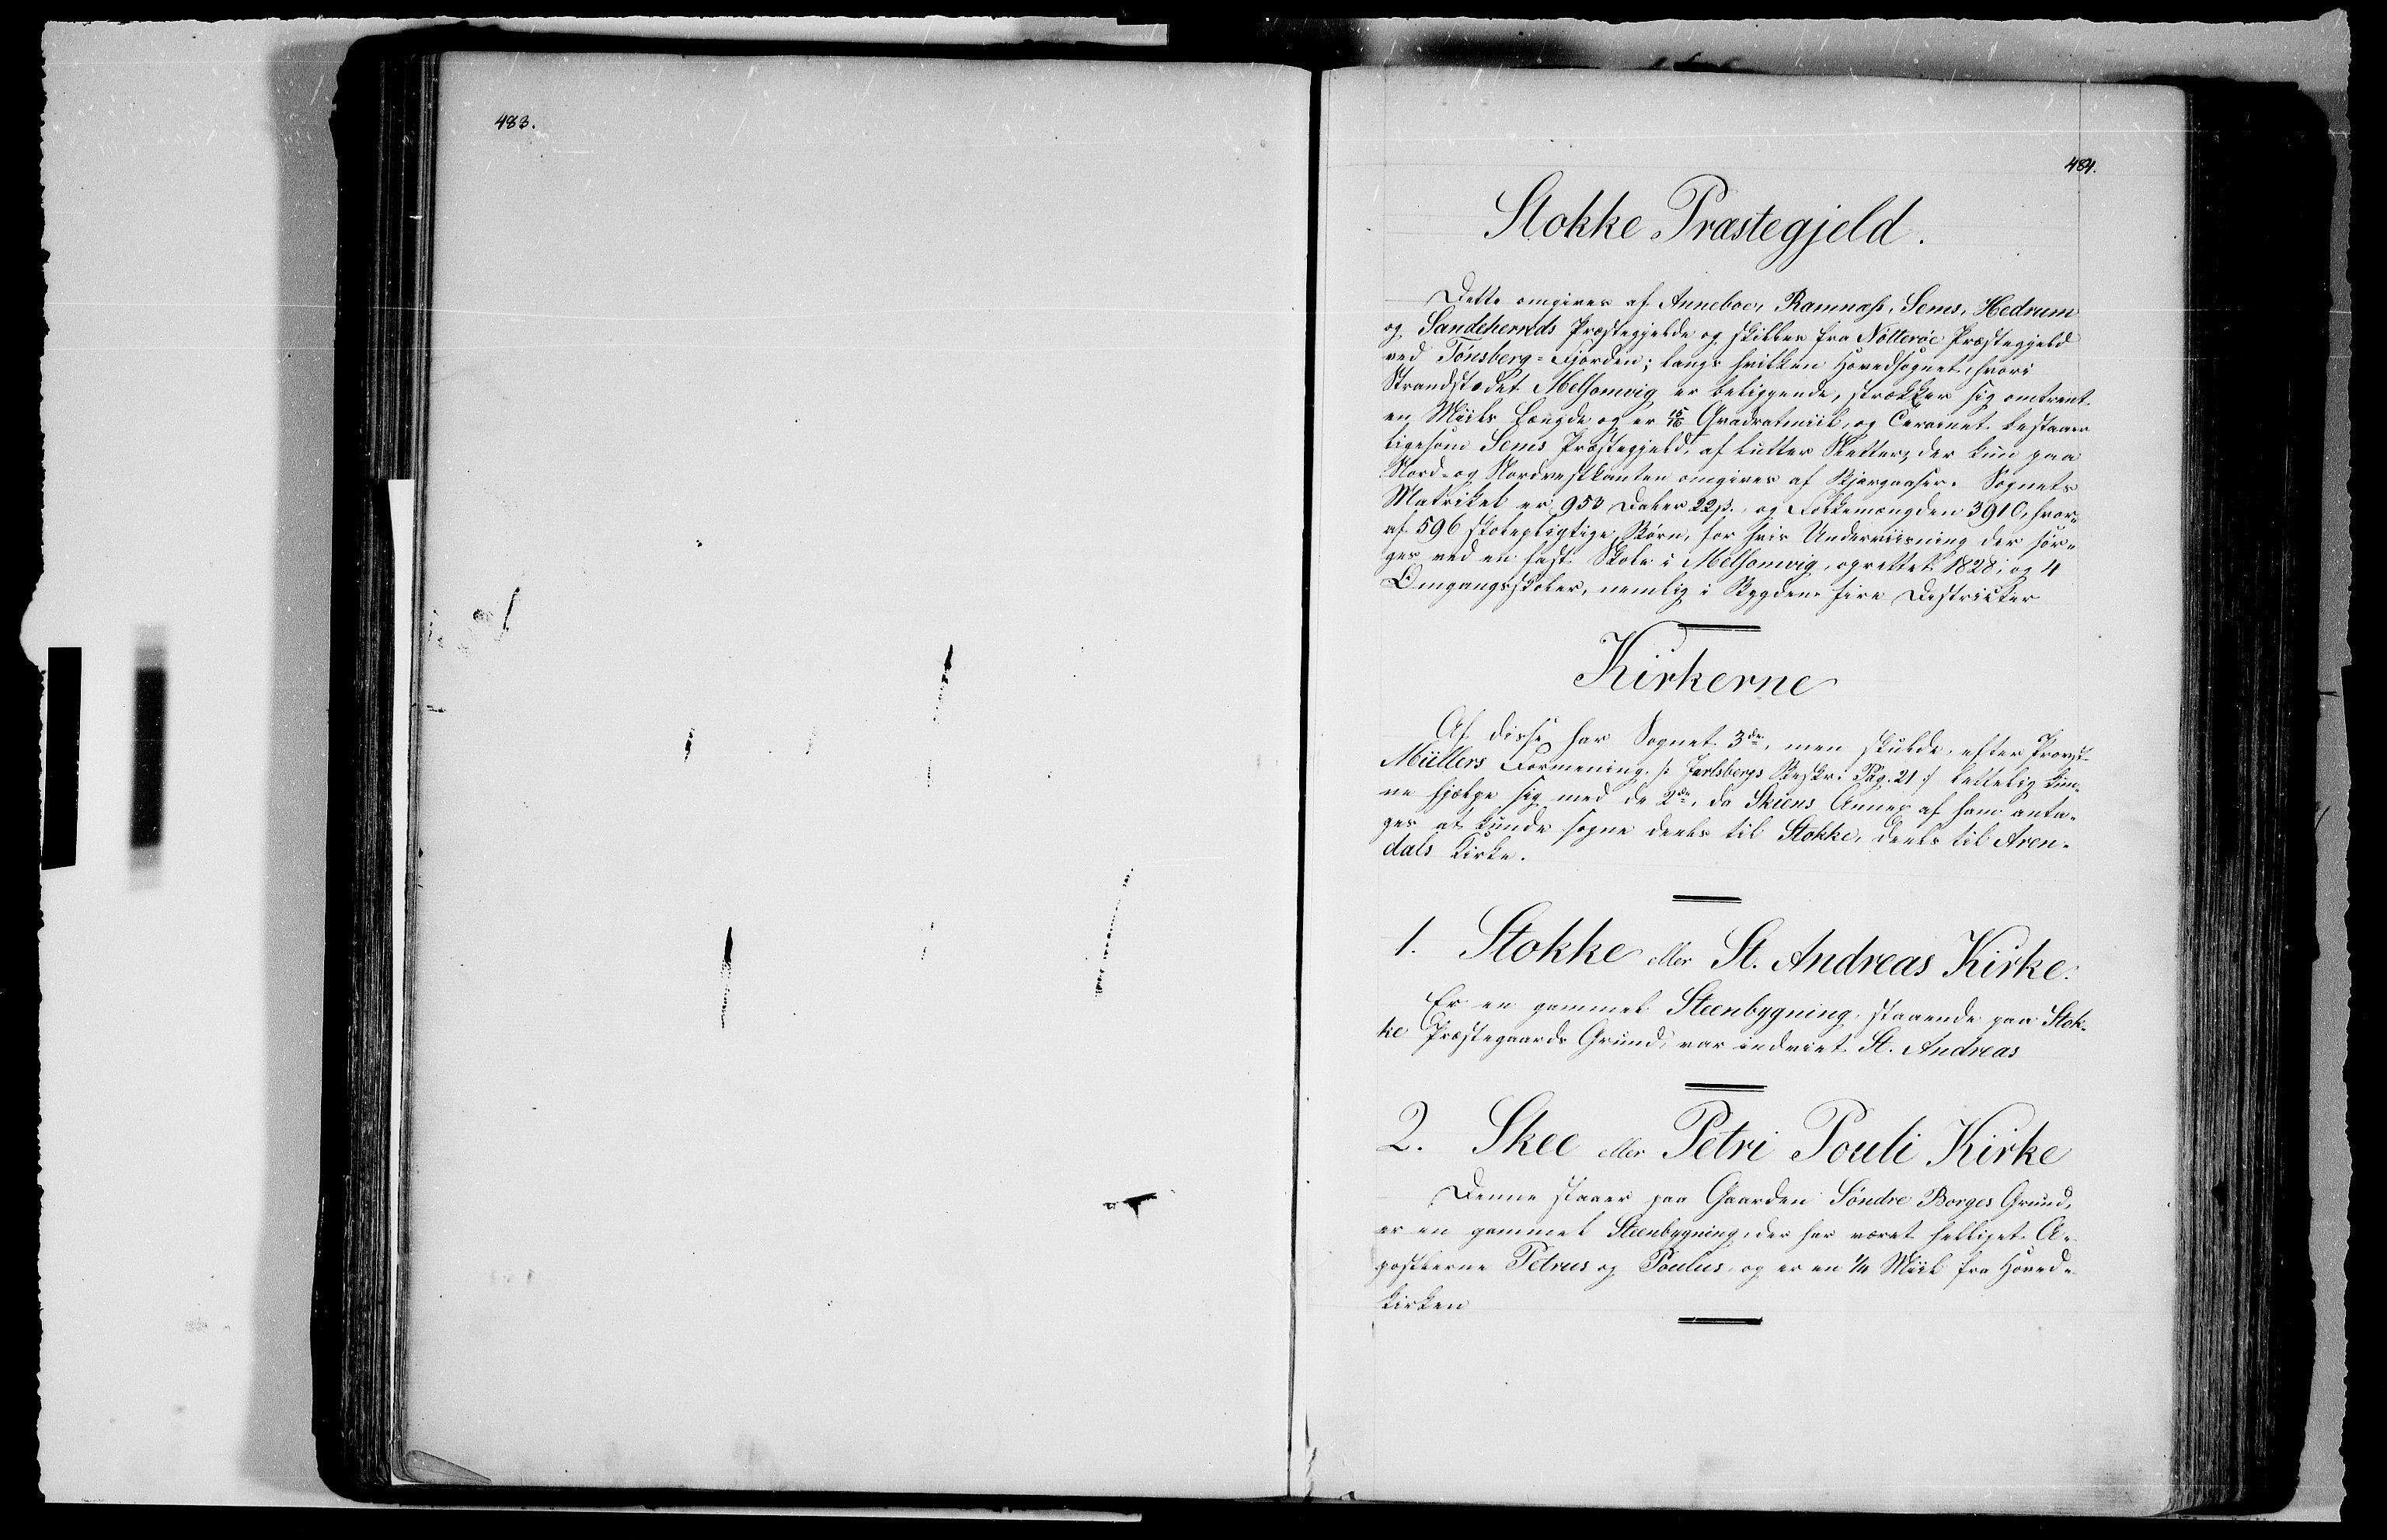 483.
484.
Stokke Præstegjeld.
Dette omgives af Anneboe, Ramnæss, Sems, Hedrum
og Sandeherreds Præstegjelde og skilles fra Nötteröe Præstegjeld
ved Tönsberg-Fjorden; langs hvilken Hovedsognet, hvori
Strandstædet Melsomvig er beliggende, strækker sig omtrent
en Miils Længde og er 15/16 Qvadratmiil, og Terrainet bestaaer
ligesom Sems Præstegjeld, af lutter Sletter, der kun paa
Nord- og Nordvestkanten omgives af Bjergaaser. Sognets
Matrikel er 953 Daler 22 ß., og Folkemængden 3910, hvor-
af 596 skolepligtige Börn, for hvis Underviisning der sör-
ges ved en fast Skole i Melsomvig, oprettet 1828, og 4
Omgangsskoler, nemlig i Bygdens fire Districter
Kirkerne
Af disse har Sognet 3de, men skulde, efter Provst
Müllers Formening /: Jarlsbergs Beskr. Pag. 21 :/ lettelig kun-
ne hjælpe sig med de 2de, da Skiens Annex af ham anta-
ges at kunde sogne deels til Stokke, deels til Aren-
dals Kirke.
1. Stokke eller St. Andreas Kirke.
Er en gammel Steenbygning, staaende paa Stok-
ke Præstegaards Grund, var indviet St. Andreas
2. Skee eller Petri Pouli Kirke
Denne staaer paa Gaarden Söndre Borges Grund,
er en gammel Steenbygning, der har været helliget A-
postlerne Petrus og Poulus, og er en 1/4 Miil fra Hoved-
kirken